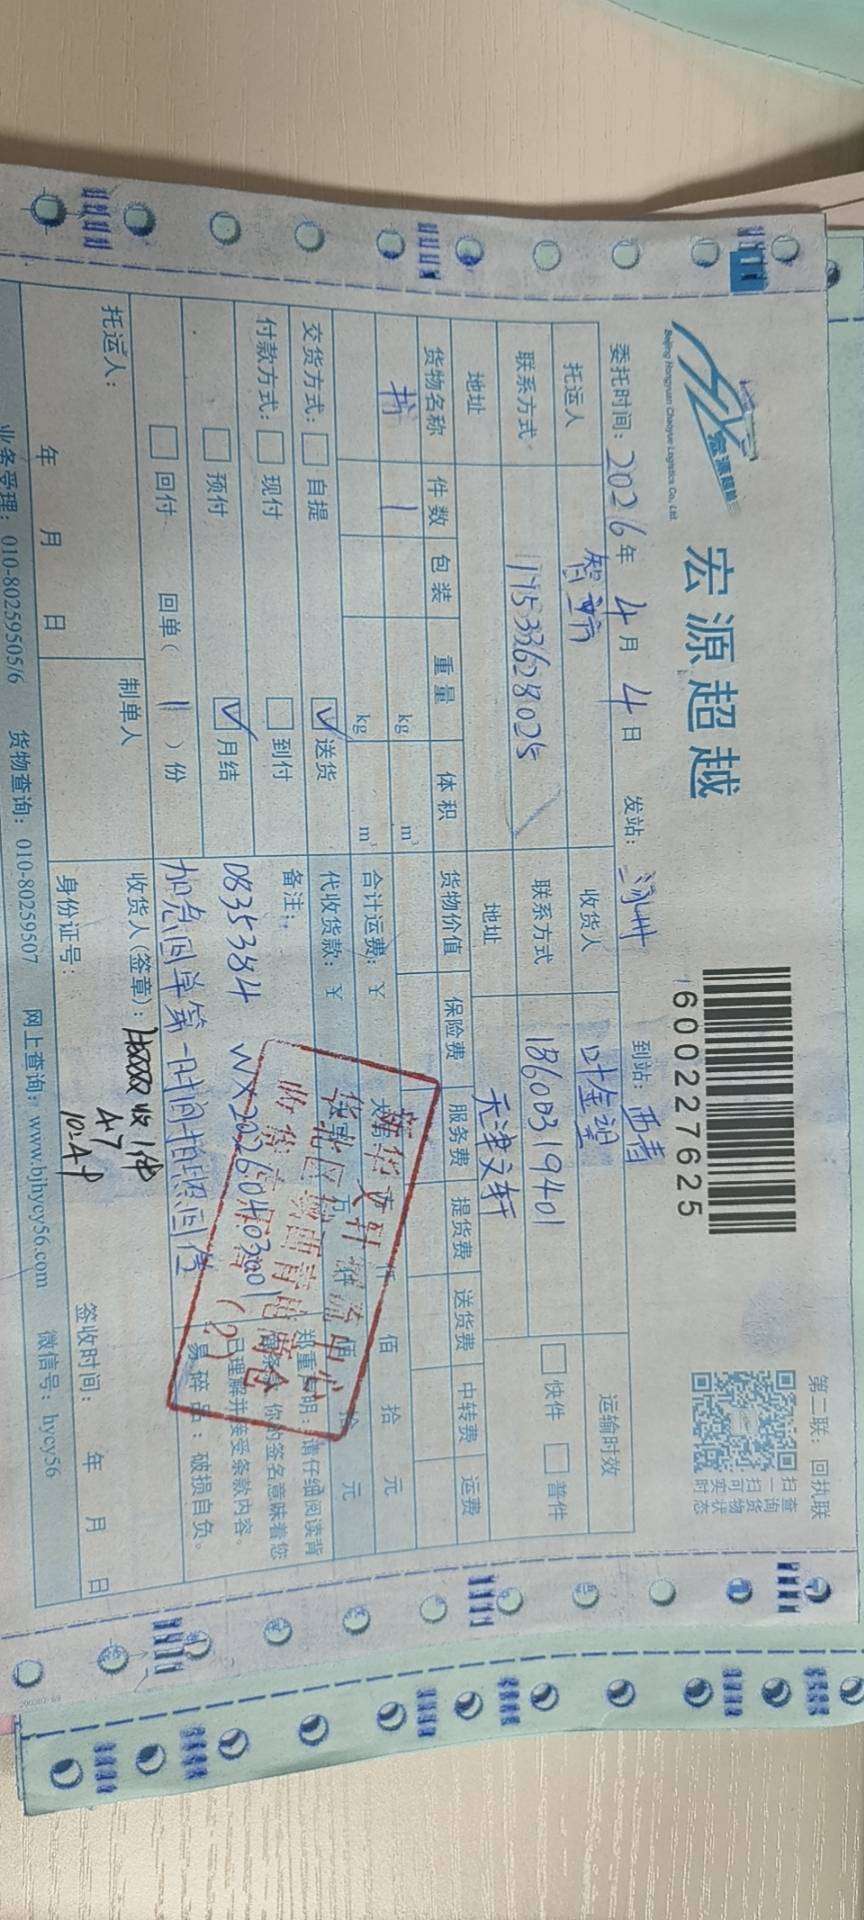 第二联：回执联
宏源超越
宏源超越
Beijing Hongyuan Chaoyue Logistics Co., Ltd.
6000227625
扫一扫可实时
查询货物状态
委托时间：2026年4月4日 发站： 到站：西青
托运人 收货人 叶金望 运输时效
联系方式 17533628025 联系方式 18600319401 快件 普件
地址 地址 天津文轩
货物名称 件数 包装 重量 体积 货物价值 保险费 服务费 提货费 送货费 中转费 运费
书 1 kg m³
kg m³ 合计运费：￥ 佰 拾 元
交货方式： 自提 ✓送货 代收货款：￥ 元
付款方式： 现付 到付 备注：
预付 ✓月结 0835384 WX20260403001
回付 回单（1）份 加急回单第一时间拍照回传
郑重声明：请仔细阅读背
你的签名意味着您
已理解并接受条款内容。
易碎品：破损自负。
新华文轩物流中心
华北区域西青出版仓
收货专用章
(2)
托运人： 制单人 收货人(签章)： 收1件
4.7
年 月 日 身份证号： 签收时间： 年 月 日
业务受理：010-80259505/6 货物查询：010-80259507 网上查询：www.bjhycy56.com 微信号：hycy56